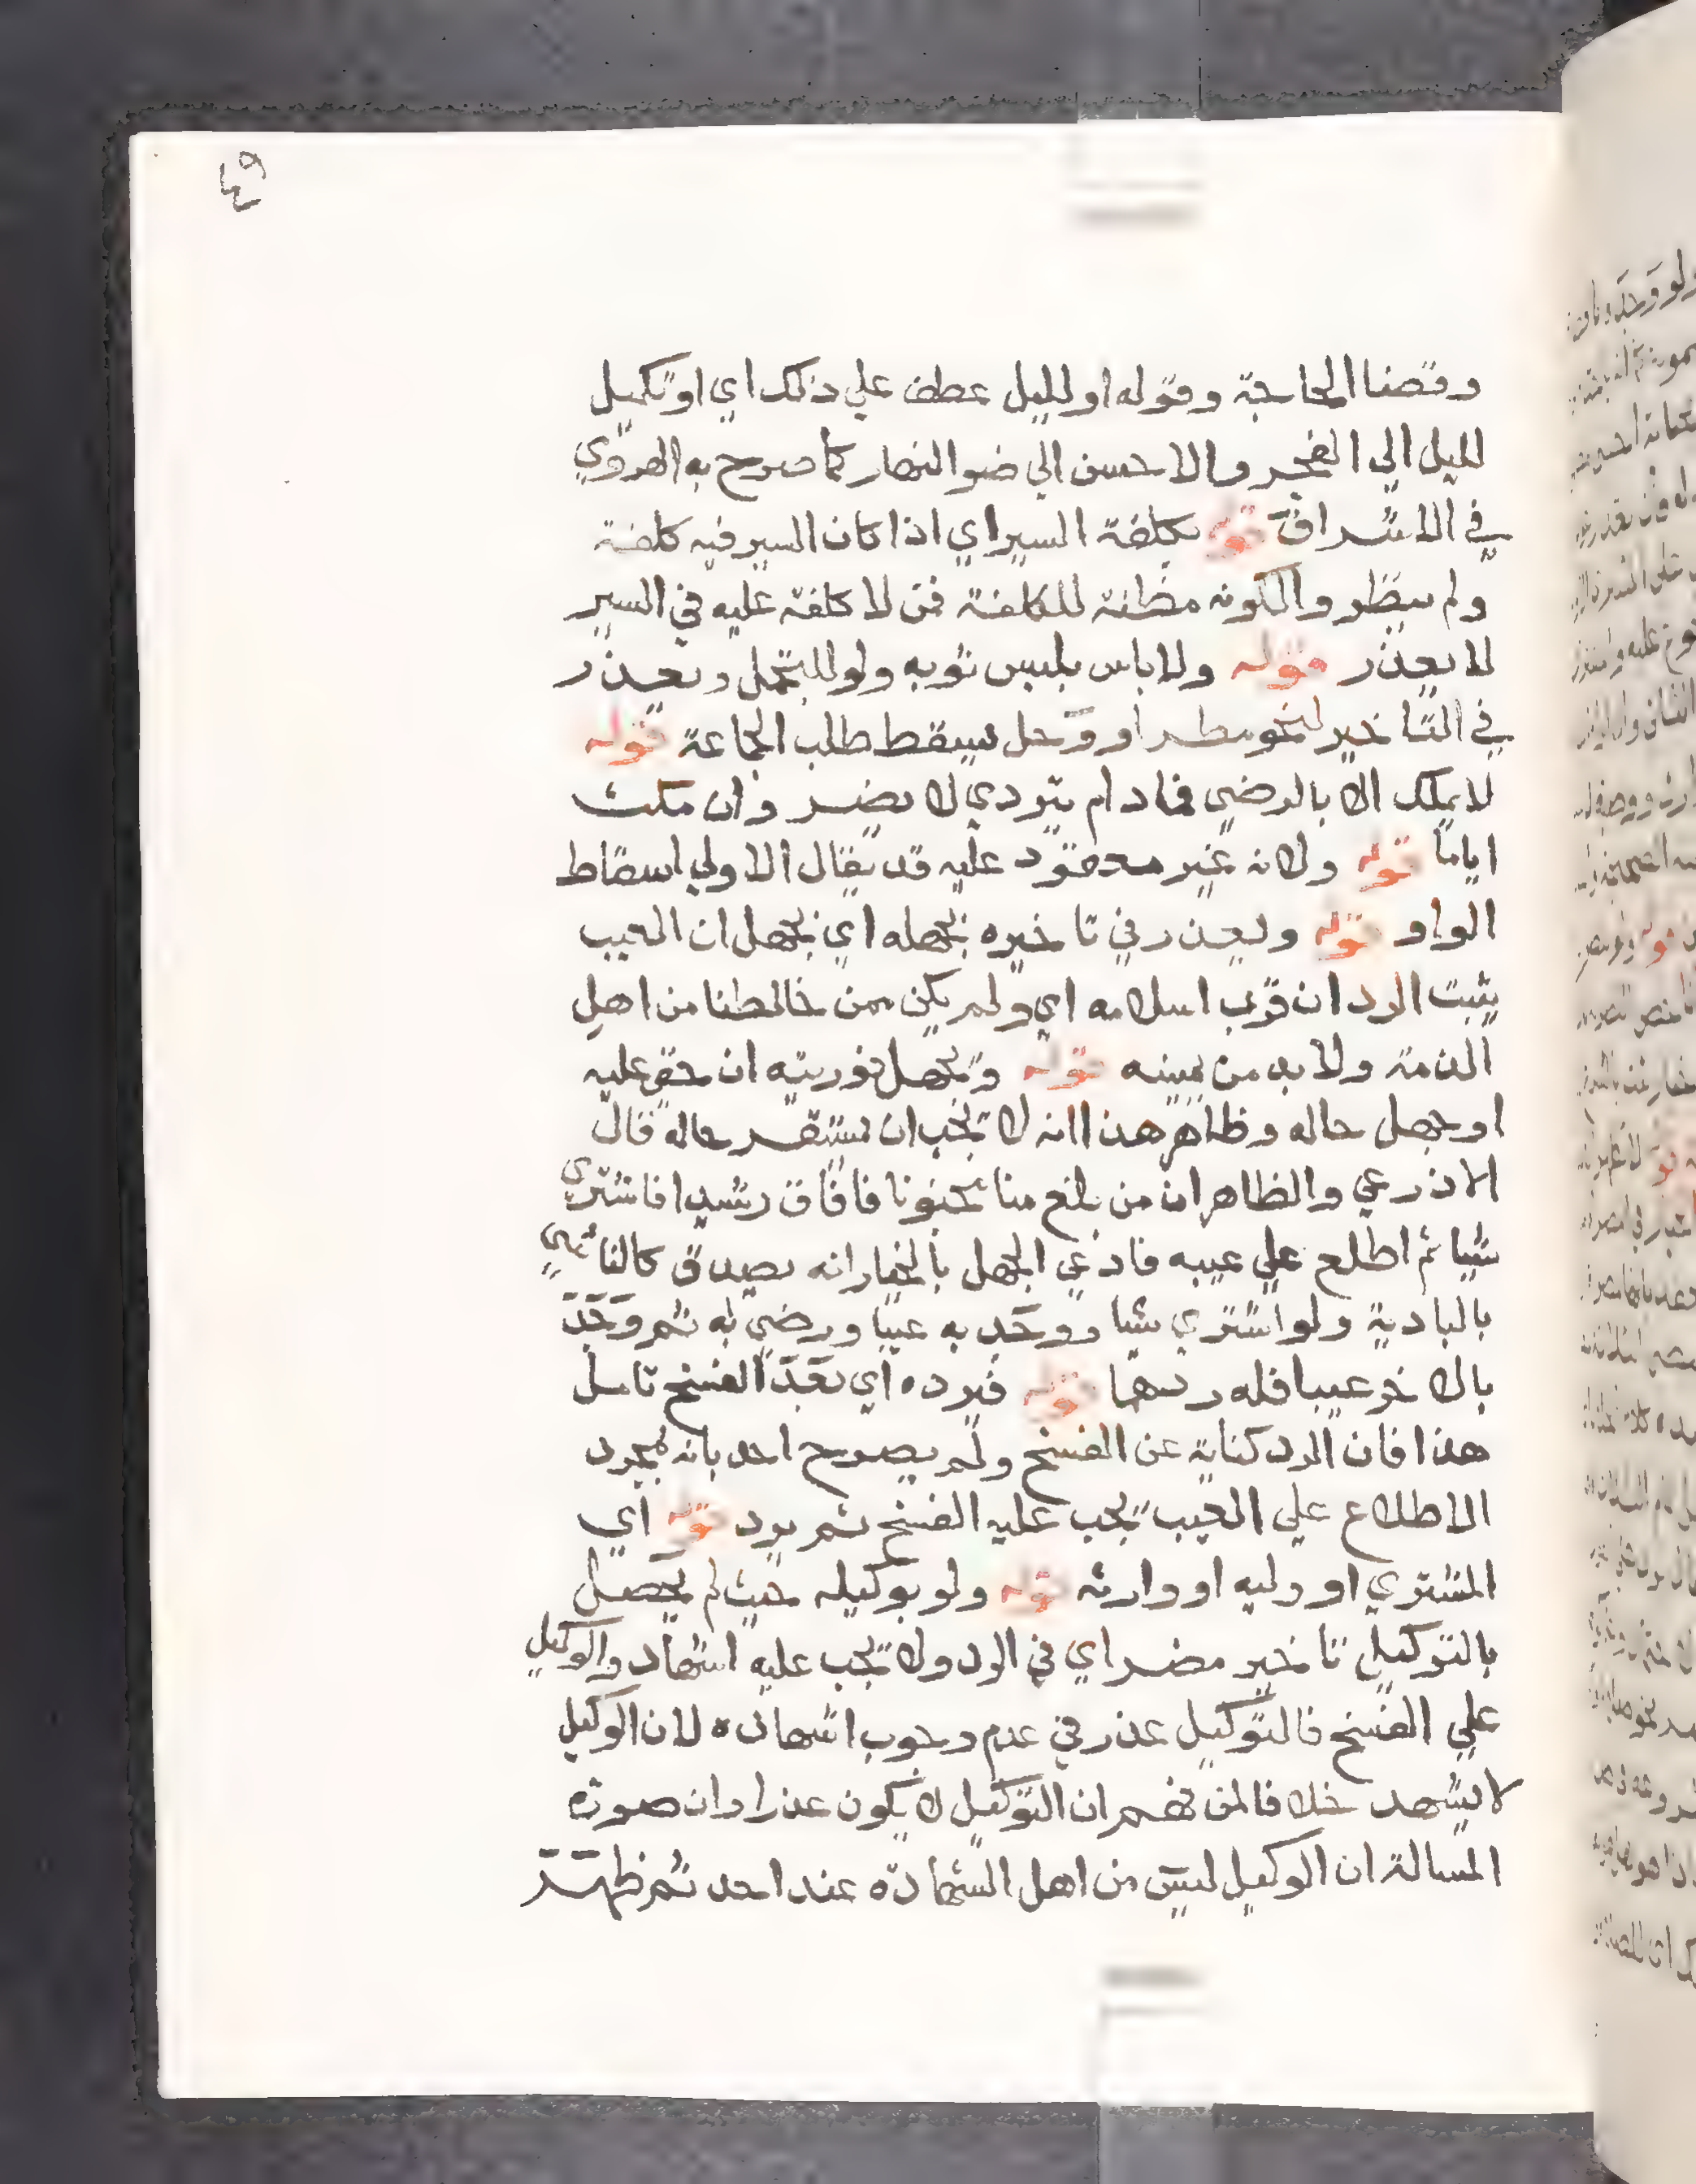 ٤٩
وقضا الحاجة وقوله او لليل عطف علي ذلك اي او تكميل
لليل الي الفجر والاحسن الي ضو النهار كما صرح به الهروي
في الاشراف قوله بكلفة السير اي اذا كان السير فيه كلفة
ولم ينظروا لكونه مظنة للكلفة فمن لا كلفة عليه في السير
لا يعذر قوله ولا باس بلبس ثوبه ولو للتجمل ويعذر
في التاخير لنحو مطر او وحل يسقط طلب الجماعة قوله
لا يملك الا بالرضي فما دام يتردي لا يضر وان مكث
اياما قوله ولانه غير معقود عليه قد يقال الاولي اسقاط
الواو قوله ويعذر في تاخيره بجهله اي بجهل ان العيب
يثبت الرد ان قرب اسلامه اي ولم يكن ممن خالطنا من اهل
الذمة ولا بد من يمينه قوله وبجهل فوريته ان خفي عليه
او جهل حاله وظاهر هذا انه لا يجب ان يستقسر حاله قال
الاذرعي والظاهر ان من بلغ منا مجنونا فافاق رشيدا فاشتري
شيا ثم اطلع علي عيبه فادعي الجهل بالخيار انه يصدق كالناشي
بالبادية ولو اشتري شيا ووجد به عيبا ورضي به ثم وجد
بالاخر عيبا فله ردهما قوله فيرده اي بعد الفسخ تامل
هذا فان الرد كناية عن الفسخ ولم يصرح احد بانه بمجرد
الاطلاع علي العيب يجب عليه الفسخ ثم يرد قوله اي
المشتري او وليه او وارثه قوله ولو بوكيله حيث لم يحصل
بالتوكيل تاخير مضر اي في الرد ولا يجب عليه اشهاد والوكيل
علي الفسخ فالتوكيل عذر في عدم وجوب اشهاده لان الوكيل
لا يشهد خلافا لمن فهم ان التوكيل لا يكون عذرا وان صورة
المسالة ان الوكيل ليس من اهل الشهادة عند احد ثم ظهر